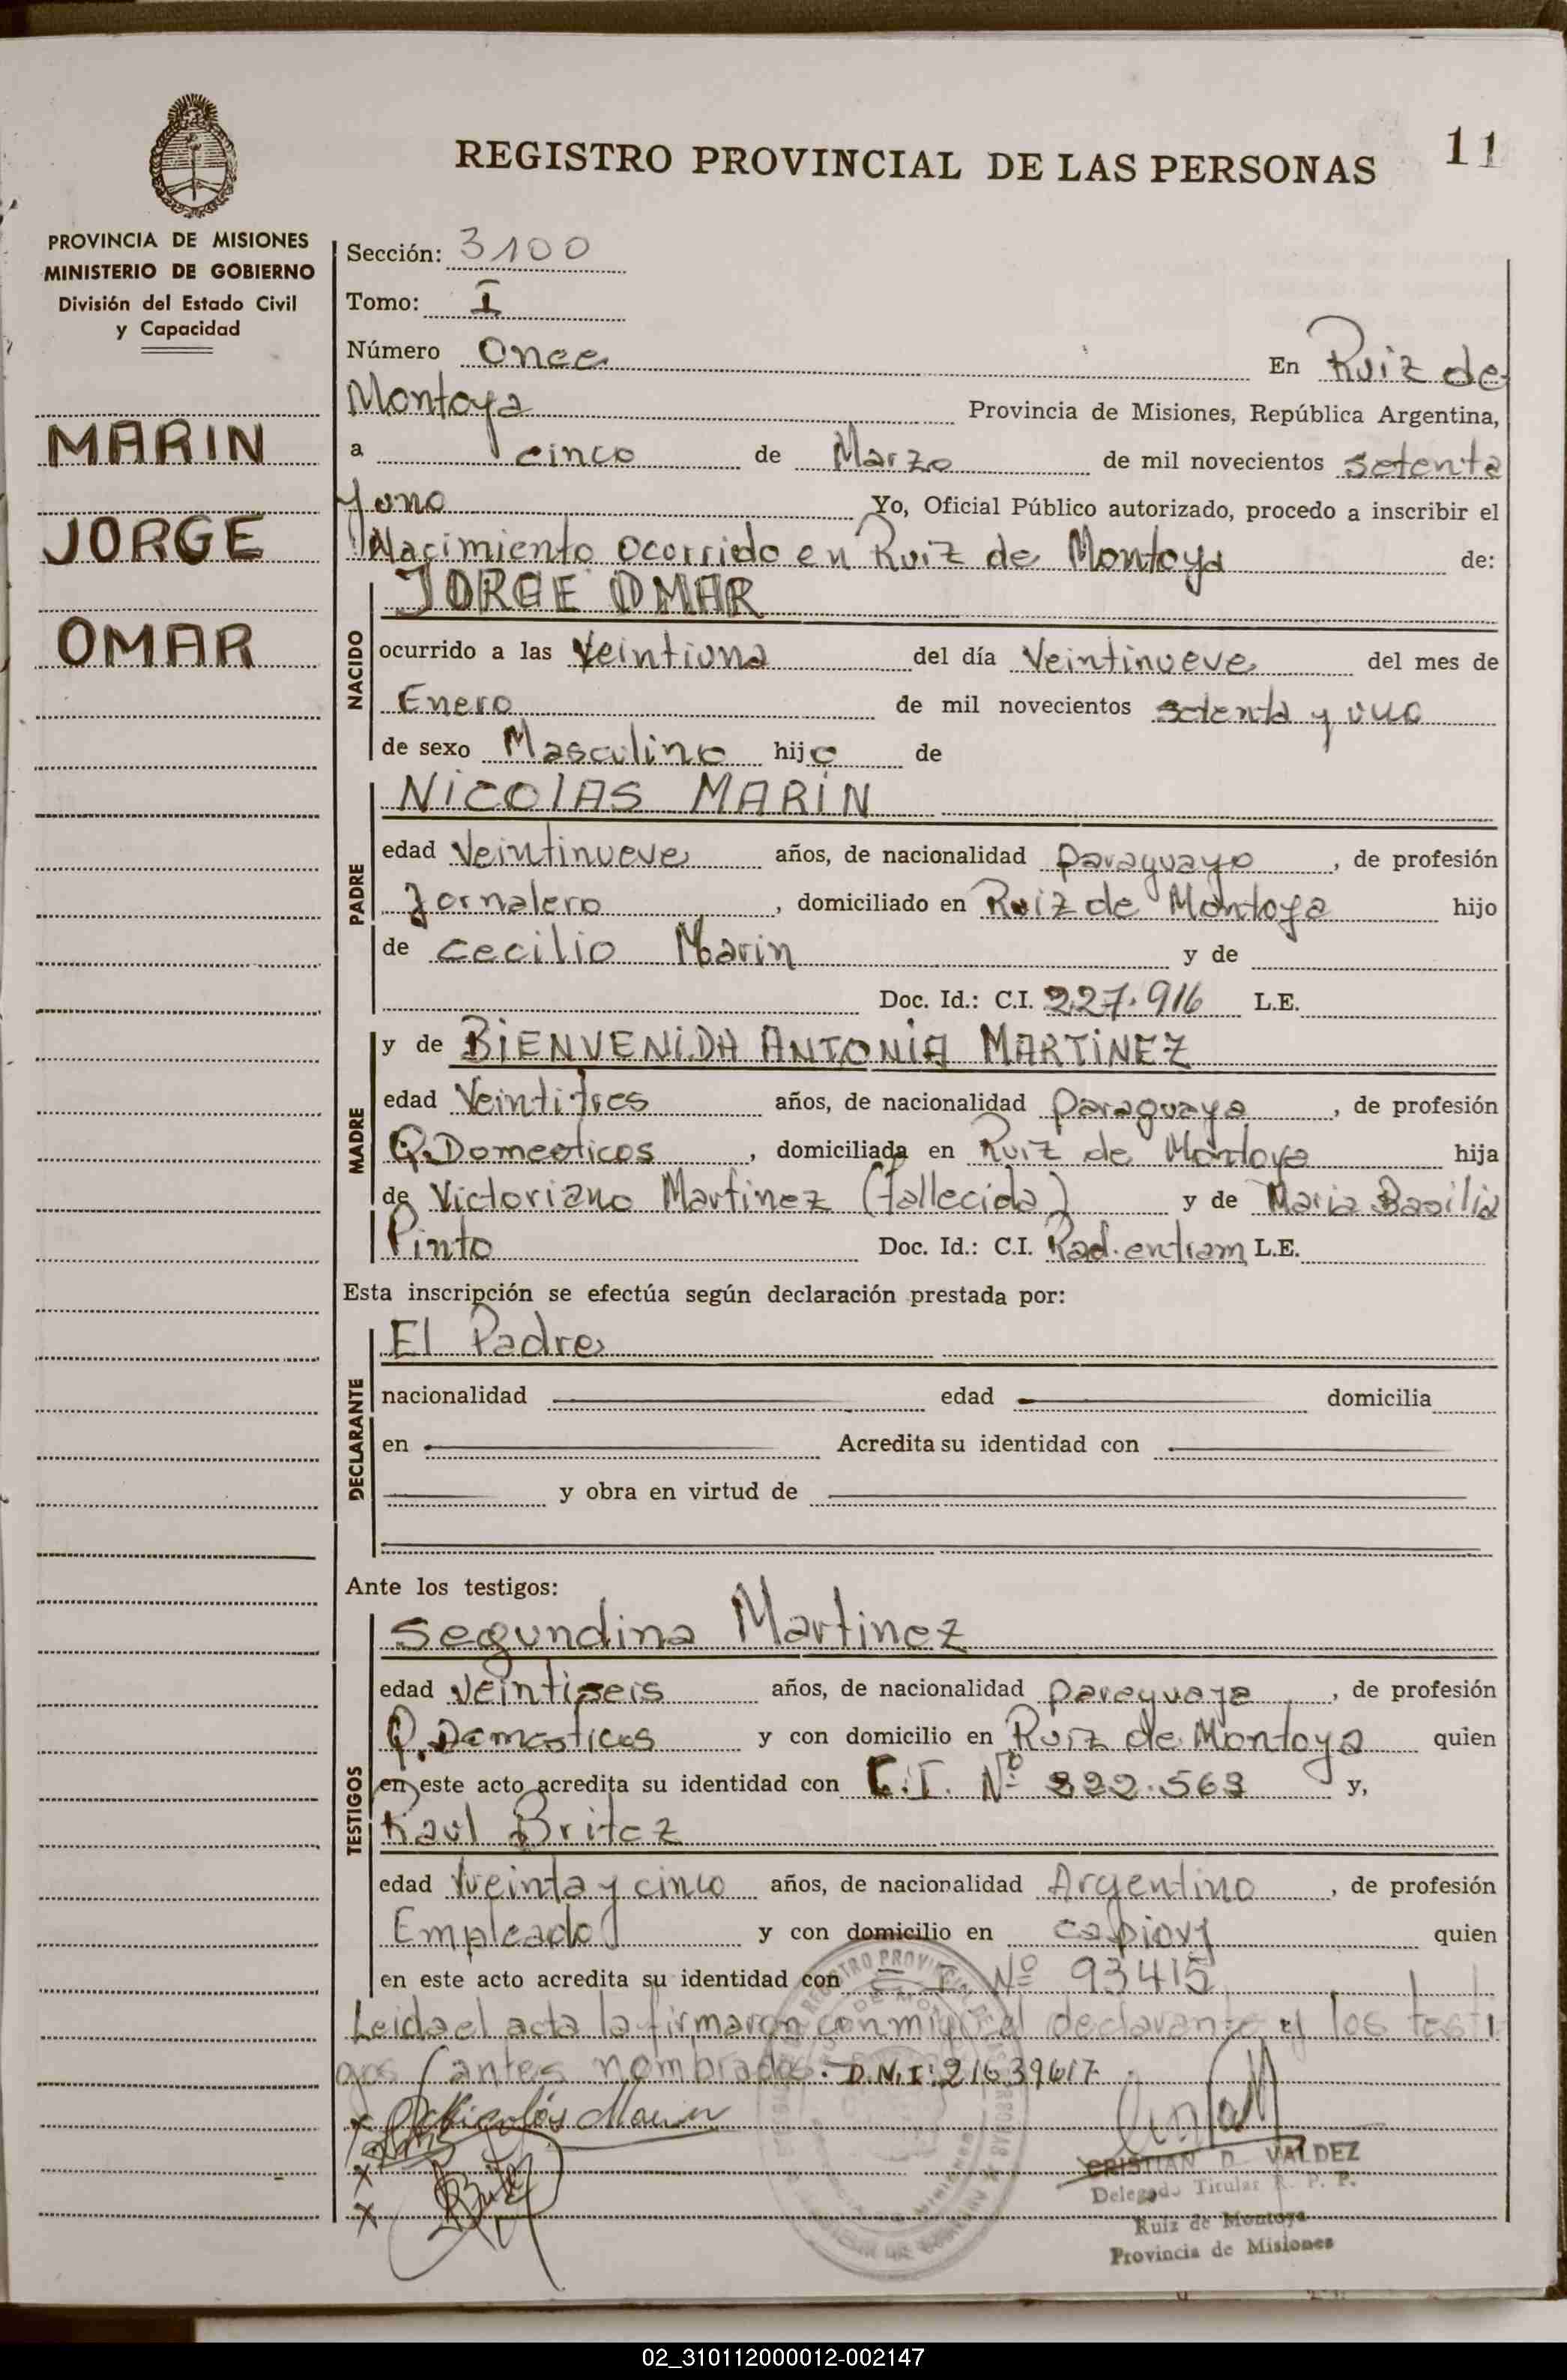 REGISTRO PROVINCIAL DE LAS PERSONAS 11
PROVINCIA DE MISIONES
MINISTERIO DE GOBIERNO
División del Estado Civil
y Capacidad
MARIN
JORGE
OMAR
Sección: 3100
Tomo: I
Número Once En Ruiz de
Montoya Provincia de Misiones, República Argentina,
a cinco de Marzo de mil novecientos setenta
y uno Yo, Oficial Público autorizado, procedo a inscribir el
Nacimiento ocurrido en Ruiz de Montoya de:
NACIDO
JORGE OMAR
ocurrido a las Veintiuna del día Veintinueve del mes de
Enero de mil novecientos setenta y uno
de sexo Masculino hijo de
PADRE
NICOLAS MARIN
edad Veintinueve años, de nacionalidad paraguayo, de profesión
Jornalero, domiciliado en Ruiz de Montoya hijo
de Cecilio Marin y de
Doc. Id.: C.I. 227.916 L.E.
MADRE
y de BIENVENIDA ANTONIA MARTINEZ
edad Veintitres años, de nacionalidad paraguaya, de profesión
Q.Domesticos, domiciliada en Ruiz de Montoya hija
de Victoriano Martinez (fallecida) y de Maria Basilia
Pinto Doc. Id.: C.I. Rad. entram L.E.
Esta inscripción se efectúa según declaración prestada por:
DECLARANTE
El Padre
nacionalidad edad domicilia
en Acredita su identidad con
y obra en virtud de
Ante los testigos:
TESTIGOS
Segundina Martinez
edad Veintiseis años, de nacionalidad paraguaya, de profesión
Q.Domesticos y con domicilio en Ruiz de Montoya quien
en este acto acredita su identidad con C.I. Nº y,
Raul Britez
edad y cinco años, de nacionalidad Argentino, de profesión
Empleado y con domicilio en capiovy quien
en este acto acredita su identidad con C I. Nº 93415
Leida el acta la firmaron conmigo el declarante y los testi
gos antes nombrados. D.N.I: 21639617
x Nicolás Marin
x
x
CRISTIAN D. VALDEZ
Delegado Titular R. P. P.
Ruiz de Montoya
Provincia de Misiones
02_310112000012-002147